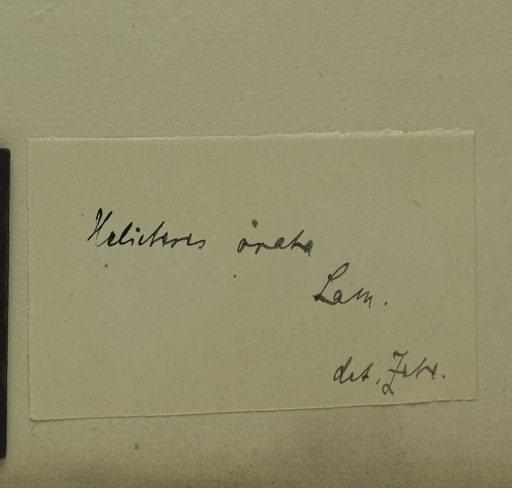 Helicteres ovata
Lam.
det.